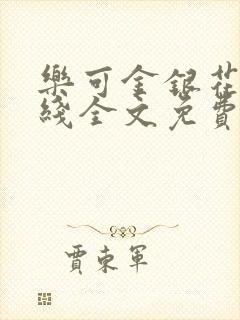 樂可金銀花
綫全文免費
賈東軍